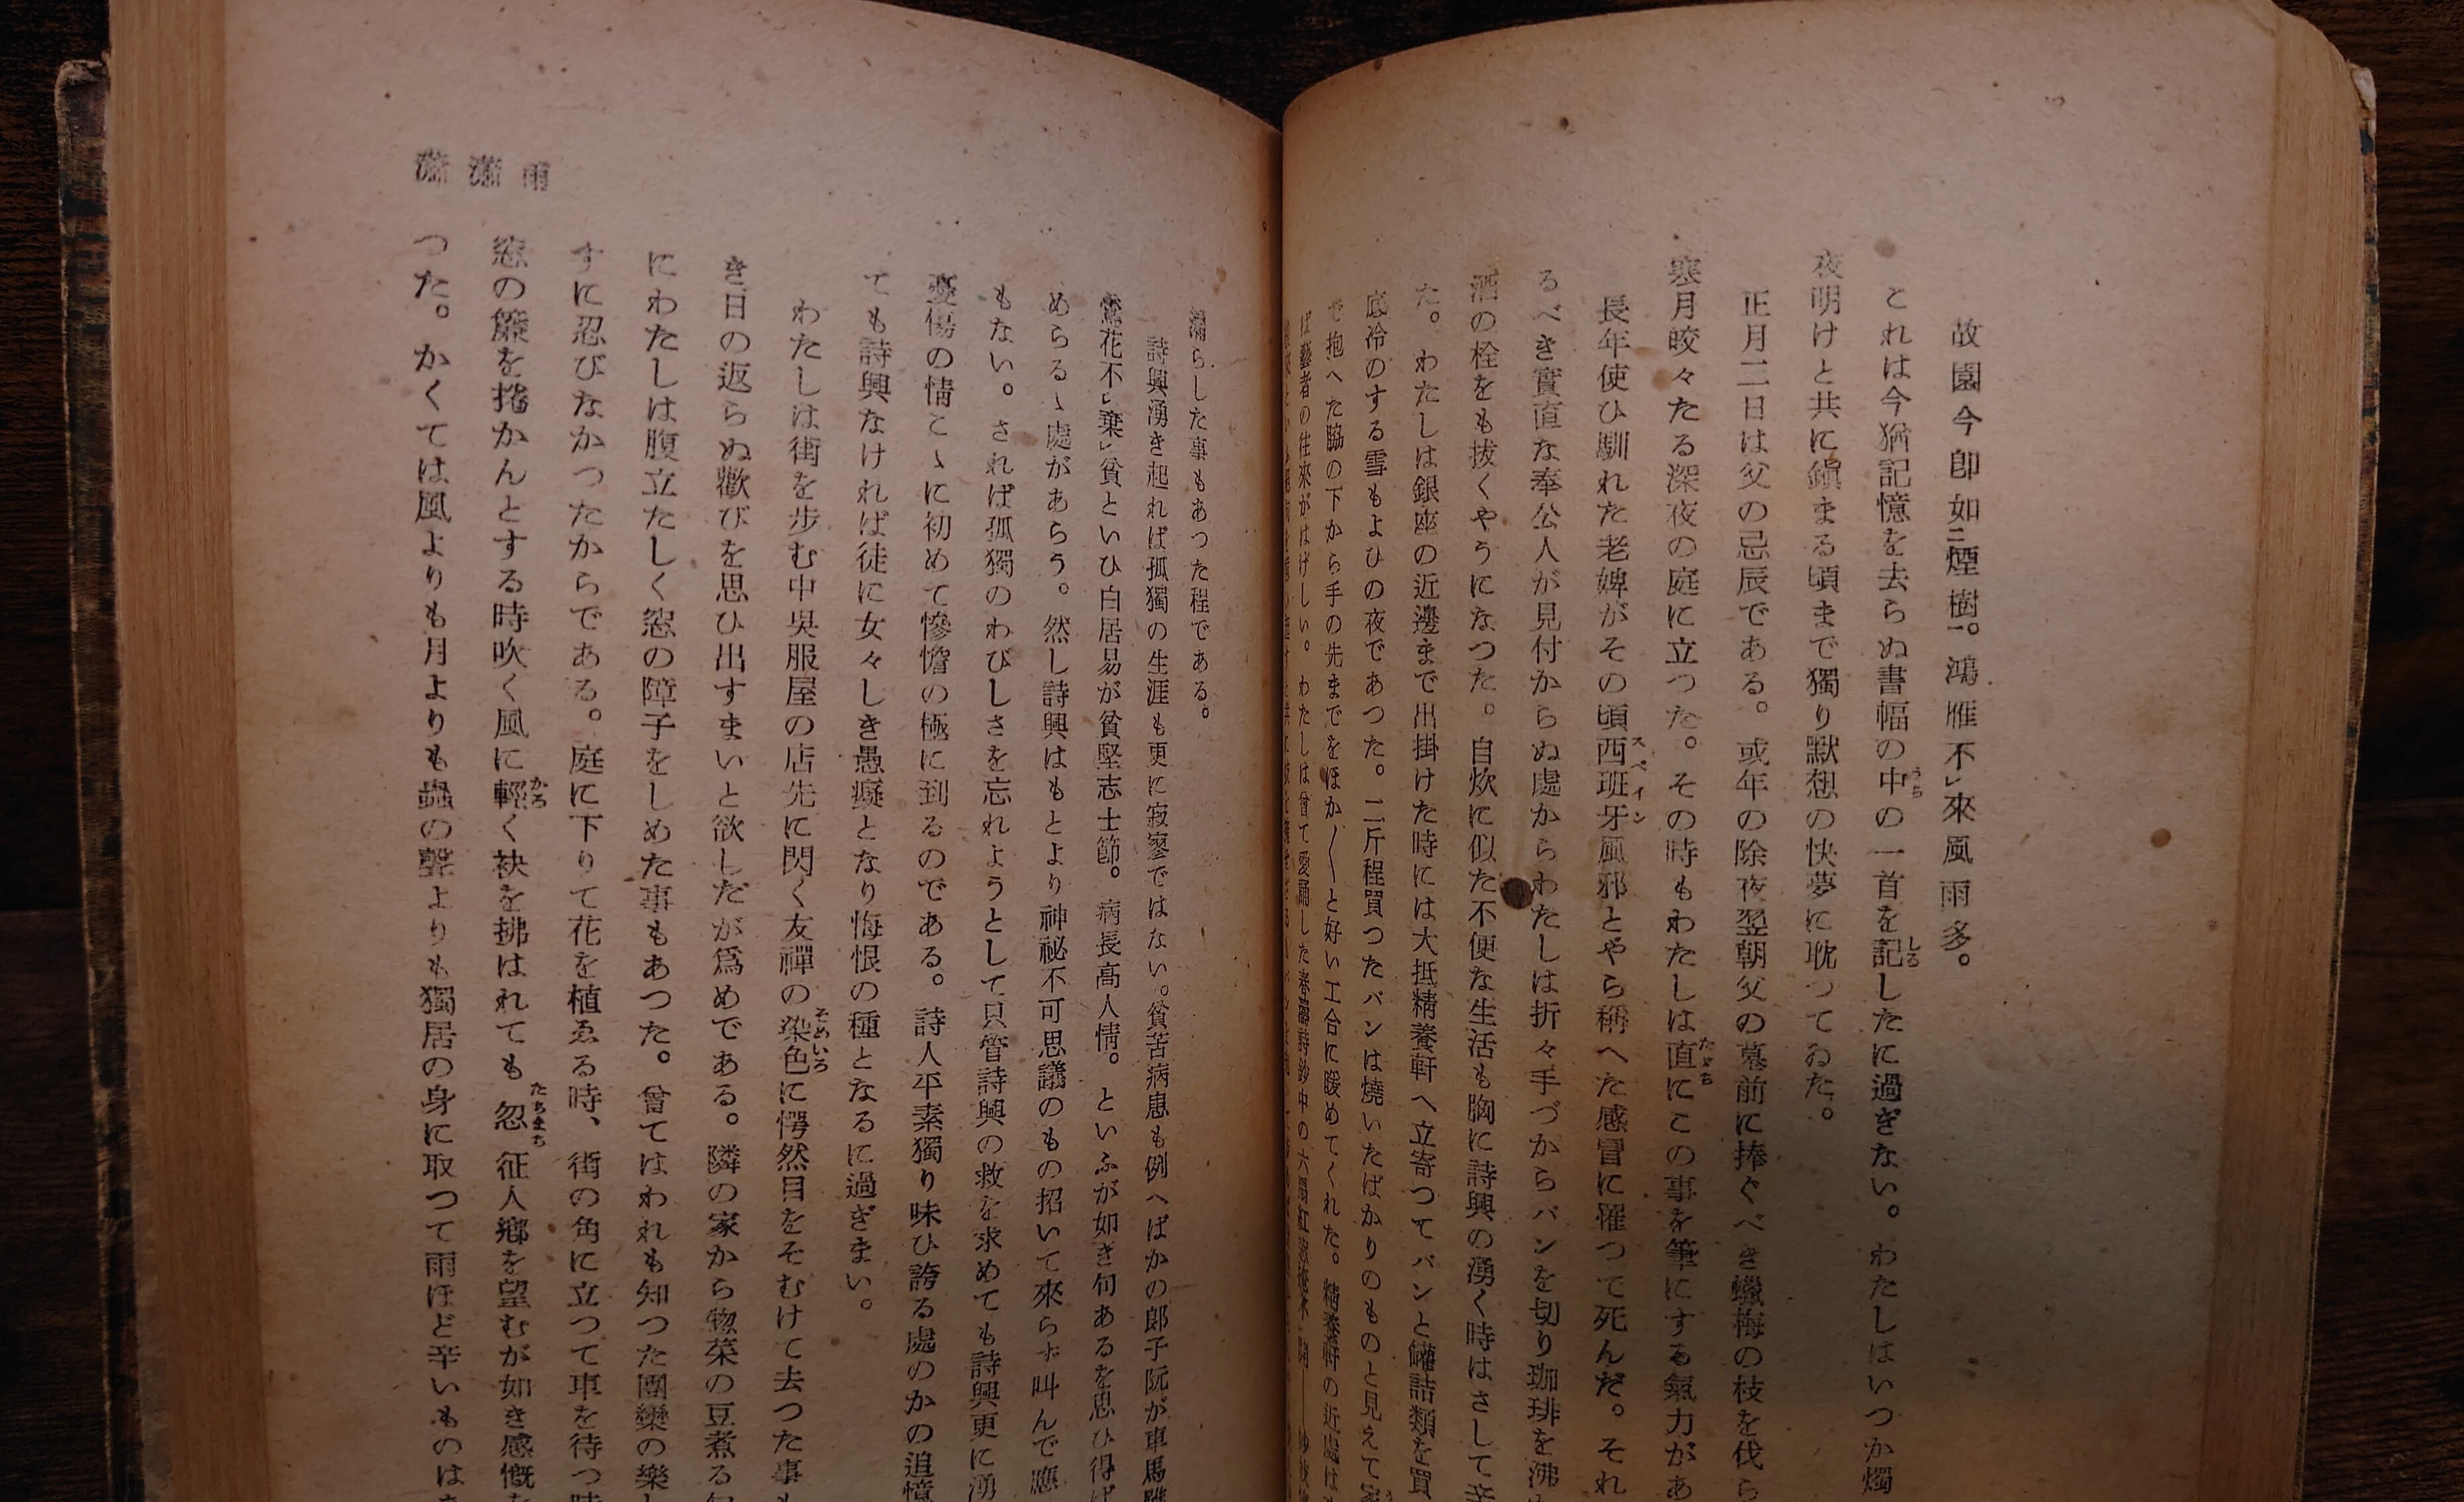 故園今卽如煙樹。鴻雁不來風雨多。
これは今猶記憶を去らぬ書幅の中の一首を記したに過ぎない。わたしはいつか燭
夜明けと共に鎭まる頃まで獨り默想の快夢に耽つてゐた。
正月二日は父の忌辰である。或年の除夜翌朝父の墓前に捧ぐべき蠟梅の枝を伐ら
寒月皎々たる深夜の庭に立つた。その時もわたしは直にこの事を筆にする氣力があ
長年使ひ馴れた老婢がその頃西班牙風邪とやら稱へた感冒に罹つて死んだ。それ
るべき實直な奉公人が見付からぬ處からわたしは折々手づからパンを切り珈琲を沸
酒の栓をも拔くやうになつた。自炊に似た不便な生活も胸に詩興の湧く時はさして辛
た。わたしは銀座の近邊まで出掛けた時には大抵精養軒へ立寄つてパンと罐詰類を買
底冷のする雪もよひの夜であつた。二斤程買つたパンは燒いたばかりのものと見えて
で抱へた脇の下から手の先までをほか〱と好い工合に暖めてくれた。精養軒の近處は
ば藝者の往來がはげしい。わたしは曾て愛誦した春濤詩鈔中の六扇紅窓掩不開――
濡らした事もあつた程である。
詩興湧き起れば孤獨の生涯も更に寂寥ではない。貧苦病患も例へばかの郎子阮が車馬雖
鶯花不棄貧といひ白居易が貧堅志士節。病長高人情。といふが如き句あるを思ひ得ば
めらるゝ處があらう。然し詩興はもとより神祕不可思議のもの招いて來らず叫んで應
もない。されば孤獨のわびしさを忘れようとして只管詩興の救を求めても詩興更に湧
憂傷の情こゝに初めて慘憺の極に到るのである。詩人平素獨り味ひ誇る處のかの追憶
ても詩興なければ徒に女々しき愚癡となり悔恨の種となるに過ぎまい。
わたしは街を步む中吳服屋の店先に閃く友禪の染色に愕然目をそむけて去つた事も
き日の返らぬ歡びを思ひ出すまいと欲しだが爲めである。隣の家から惣菜の豆煮る
にわたしは腹立たしく窓の障子をしめた事もあつた。曾てはわれも知つた團欒の樂し
すに忍びなかつたからである。庭に下りて花を植ゑる時、街の角に立つて車を待つ時
窓の簾を捲かんとする時吹く風に輕く袂を拂はれても忽征人鄕を望むが如き感慨を
つた。かくては風よりも月よりも蟲の聲よりも獨居の身に取つて雨ほど辛いものは
雨瀟瀟